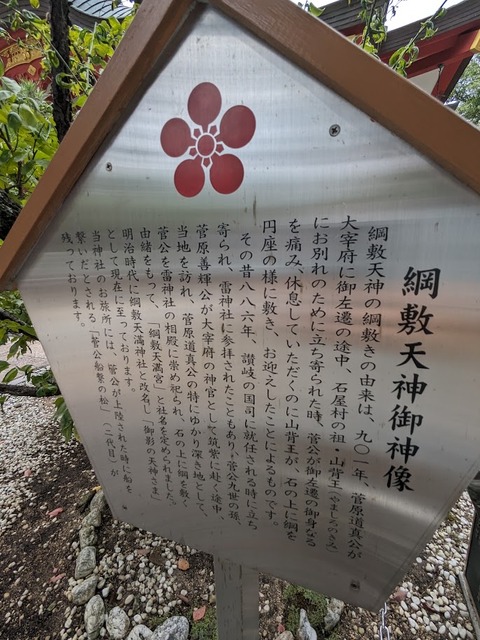 綱敷天神御神像
綱敷天神の綱敷きの由来は、九〇一年、菅原道真公が
大宰府に御左遷の途中、石屋村の祖・山背王(やましろのきみ)
にお別れのために立ち寄られた時、菅公が御左遷の御身なる
を痛み、休息していただくのに山背王が、石の上に綱を
円座の様に敷き、お迎えしたことによるものです。
その昔八八六年、讃岐の国司に就任される時に立ち
寄られ、雷神社に参拝されたこともあり、菅公九世の孫、
菅原善輝公が大宰府の神官として筑紫に赴く途中、
当地を訪れ、菅原道真公の特にゆかり深き地として、
菅公を雷神社の相殿に崇め祀られ、石の上に綱を敷く
由緒をもって、「綱敷天満宮」と社名を定められました。
明治時代に綱敷天満神社と改名し「御影の天神さま」
として現在に至っております。
当神社のお旅所には、菅公が上陸された時に船を
繋いだとされる「菅公船繋の松」(二代目)が
残っております。